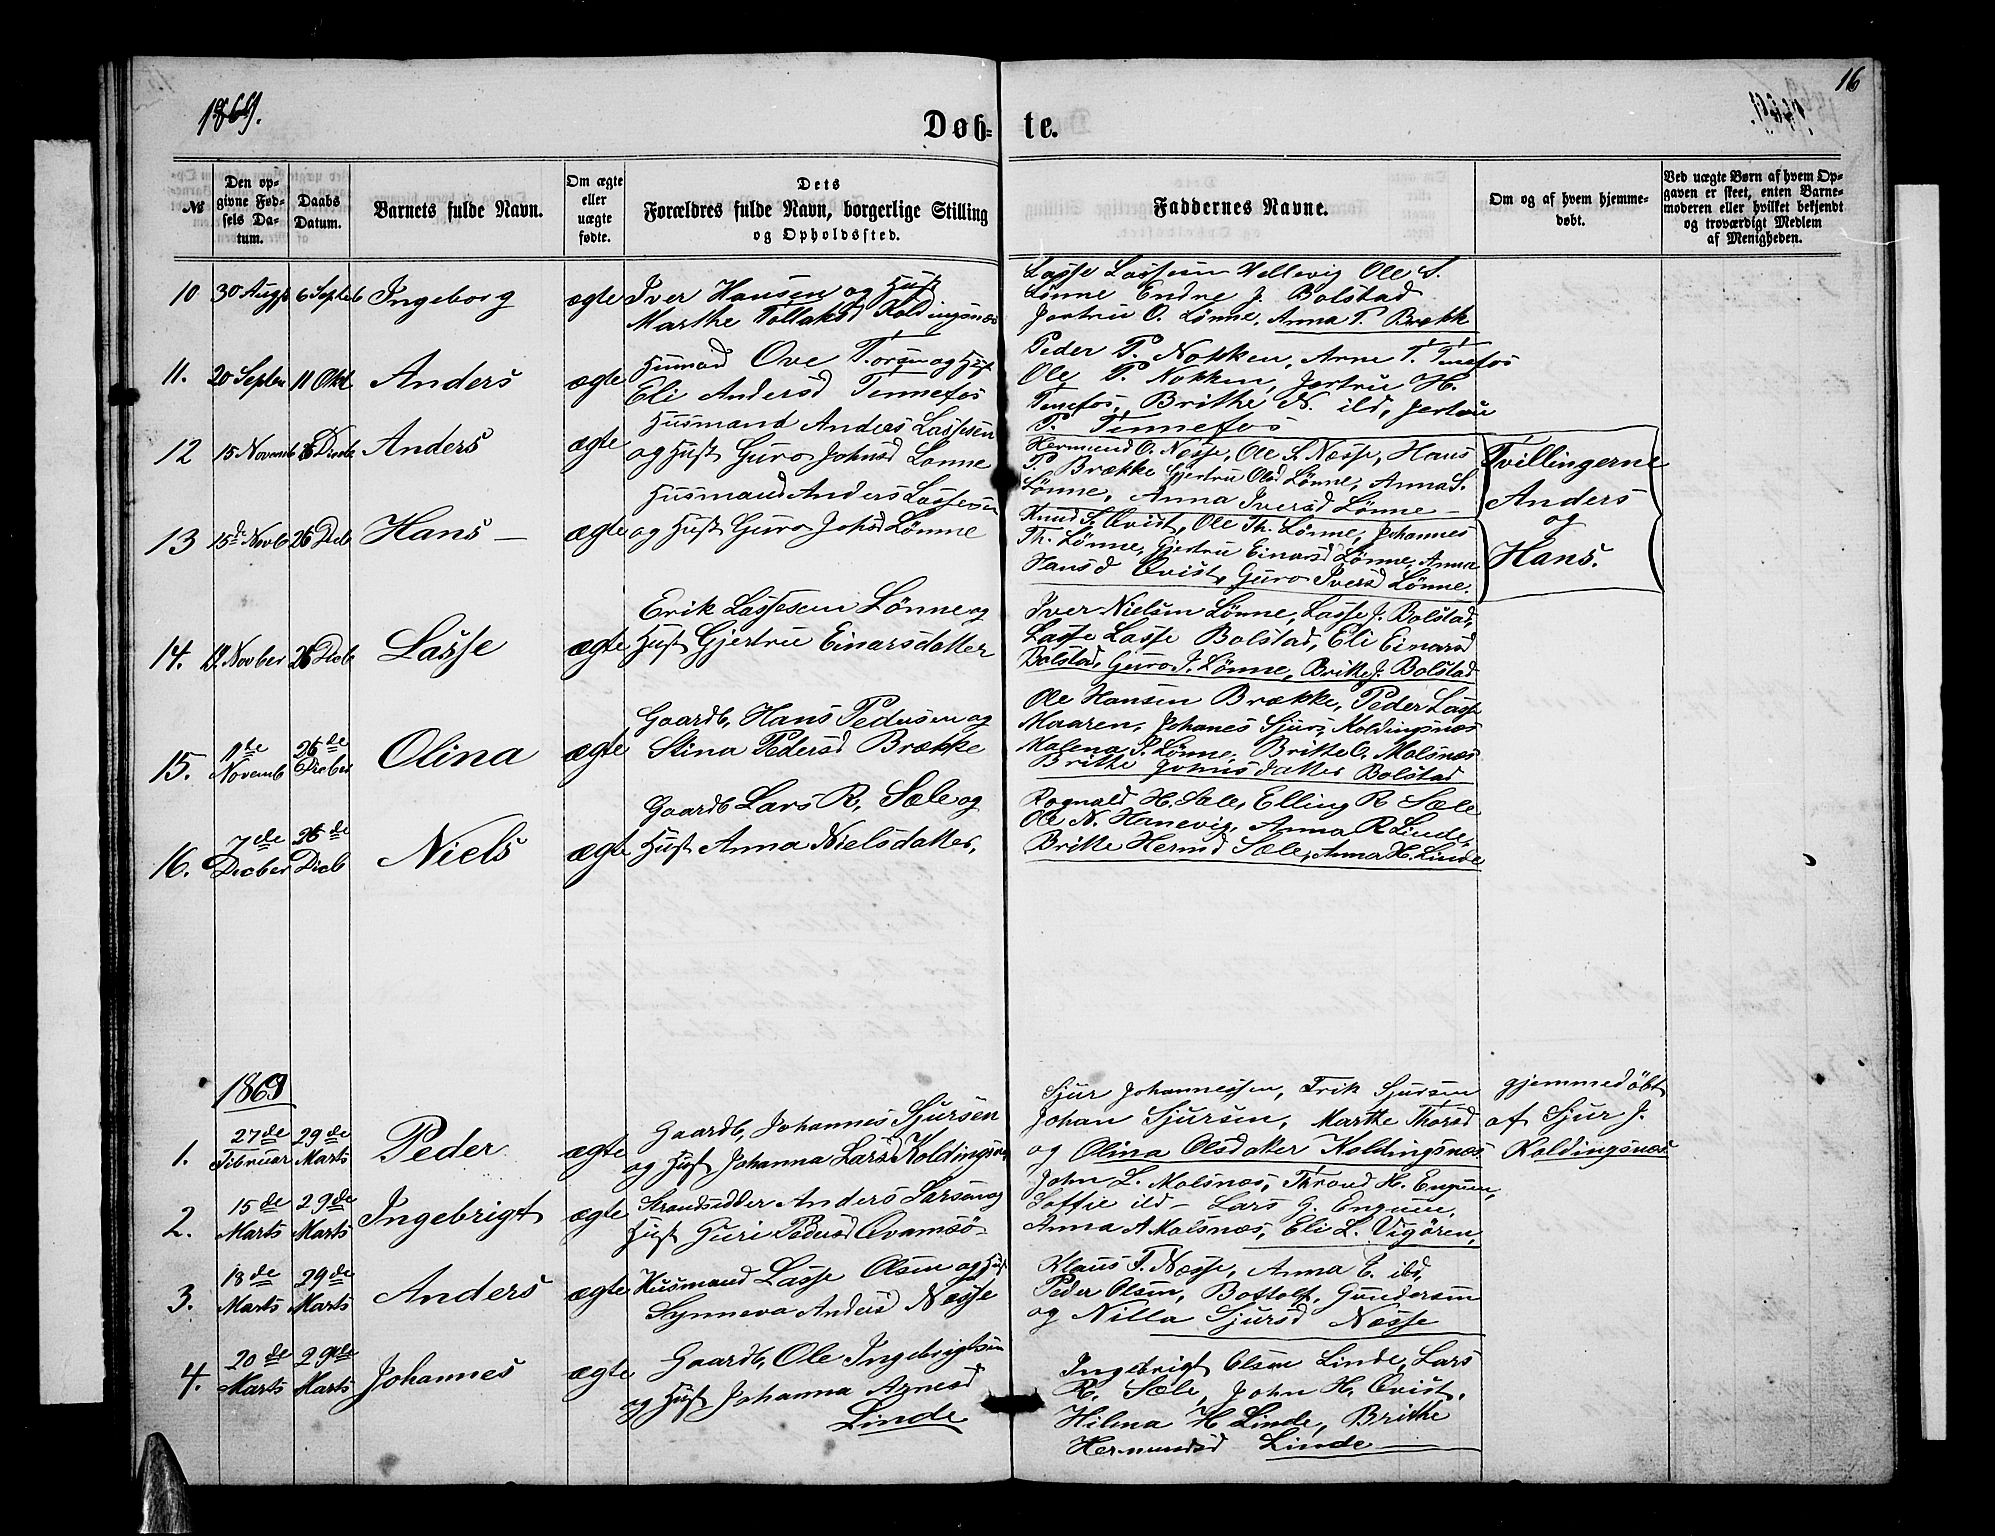 16
1869.
Døb- te.
№
Den opgivne Fødsels Datum.
Daabs Datum.
Barnets fulde Navn.
Om ægte eller uægte fødte.
Dets Forældres fulde Navn, borgerlige Stilling og Opholdssted.
Faddernes Navne.
Om og af hvem hjemmedøbt.
Ved uægte Børn af hvem Opgaven er skeet, enten Barnemoderen eller hvilket bekjendt og troværdigt Medlem af Menigheden.
10 30 Augs 6 Septeb Ingeborg ægte
Iver Hansen og Hust
Marthe Tollaksd Koldingsnæs
Lasse Lassesen Hellevig Ole S.
Lønne Endre J. Bolstad
Jertru O. Lønne, Anna P. Brækk
11. 20 Septen 11 Okt Anders ægte
Husmand Ove Torsen og Hust
Eli Andersd Tennefos
Peder P. Nokken, Arne T. Tenefos
Ole P. Nokken, Jertru H.
Tenefos, Brithe N. ild, Jertru
P. Tennefos
12 15 Novemb 26 Decb Anders ægte
Husmand Anders Lassesen
og Hust Guro Johnsd Lønne
Hermund O. Nesse, Ole S. Nesse, Hans
P. Brække Gjertru Olsd Lønne, Anna S.
Lønne, Anna Iversd Lønne -
Tvillingerne
Anders
og
Hans.
13 15de Novb 26 Deb Hans - ægte
Husmand Anders Lassesen
og Hust Guro Johsd Lønne
Knud S. Qvist, Ole Th. Lønne, Johannes
Th. Lønne, Gjertru Einarsd Lønne, Anna
Hansd Qvist, Guro Iversd Lønne.
14. Novber 26 Decb Lasse ægte
Erik Lassesen Lønne og
Hust Gjertru Einarsdatter
Iver Nielsen Lønne, Lasse J. Bolstad,
Lasse Lasse Bolstad, Eli Einarsd
Bolstad, Guro J. Lønne, Brithe J. Bolstad
15. Novemb 26de Decber Olina ægte
Gaardb, Hans Pedersen og
Stina Pedersd Brække
Ole Hansen Brække, Peder Lasse
Maaren, Johanes Sjurs, Koldingsnæs
Malena S. Lønne, Britte O. Malsnæs
Brithe Johnisdatter Bolstad
16. 7de Decber 26de Decb Niels ægte
Gaardb Lars R, Sæle og
Hust Anna Nielsdatter,
Rognald H. Sæle, Elling R Sæle
Ole N. Hanevig, Anna R Linde,
Britte Hermd Sæle, Anna H. Linde
1869
1. 27de Februar 29de Marts Peder ægte
Gaardb, Johannes Sjursen
og Hust Johanna Larsd Koldingsnæs
Sjur Johannessen, Erik Sjursen
Johan Sjursen, Marthe Thorsd
og Olina Olsdatter Koldingsnæs
gjemmedøbt
af Sjur J.
Koldingsnæs
2. 15de Marts 29de Marts Ingebrigt ægte
Strandsidder Anders Larsen og
Hust Guri Pedersd Qvamsø -
John L. Malsnæs, Thrond H. Engum,
Soffie ild - Lars G. Engum,
Anna A Malsnæs, Eli L. Vigøren,
3. 18de Marts 29de Marts Anders ægte
Husmand Lasse Olsen og Hust
Synneva Andersd Nesse
Klaus T. Nesse, Anna E. ibd,
Peder Olsen, Bottolf, Gundersen
og Nilla Sjursd Nesse
4. 20de Marts 29de Marts Johannes ægte
Gaardb, Ole Ingebrigtsen
og Hust Johanna Arnesd
Linde
Ingebrigt Olsen Linde, Lars
R. Sæle, John H. Qvist,
Hilena H Linde, Brithe
Hermundsd Linde -